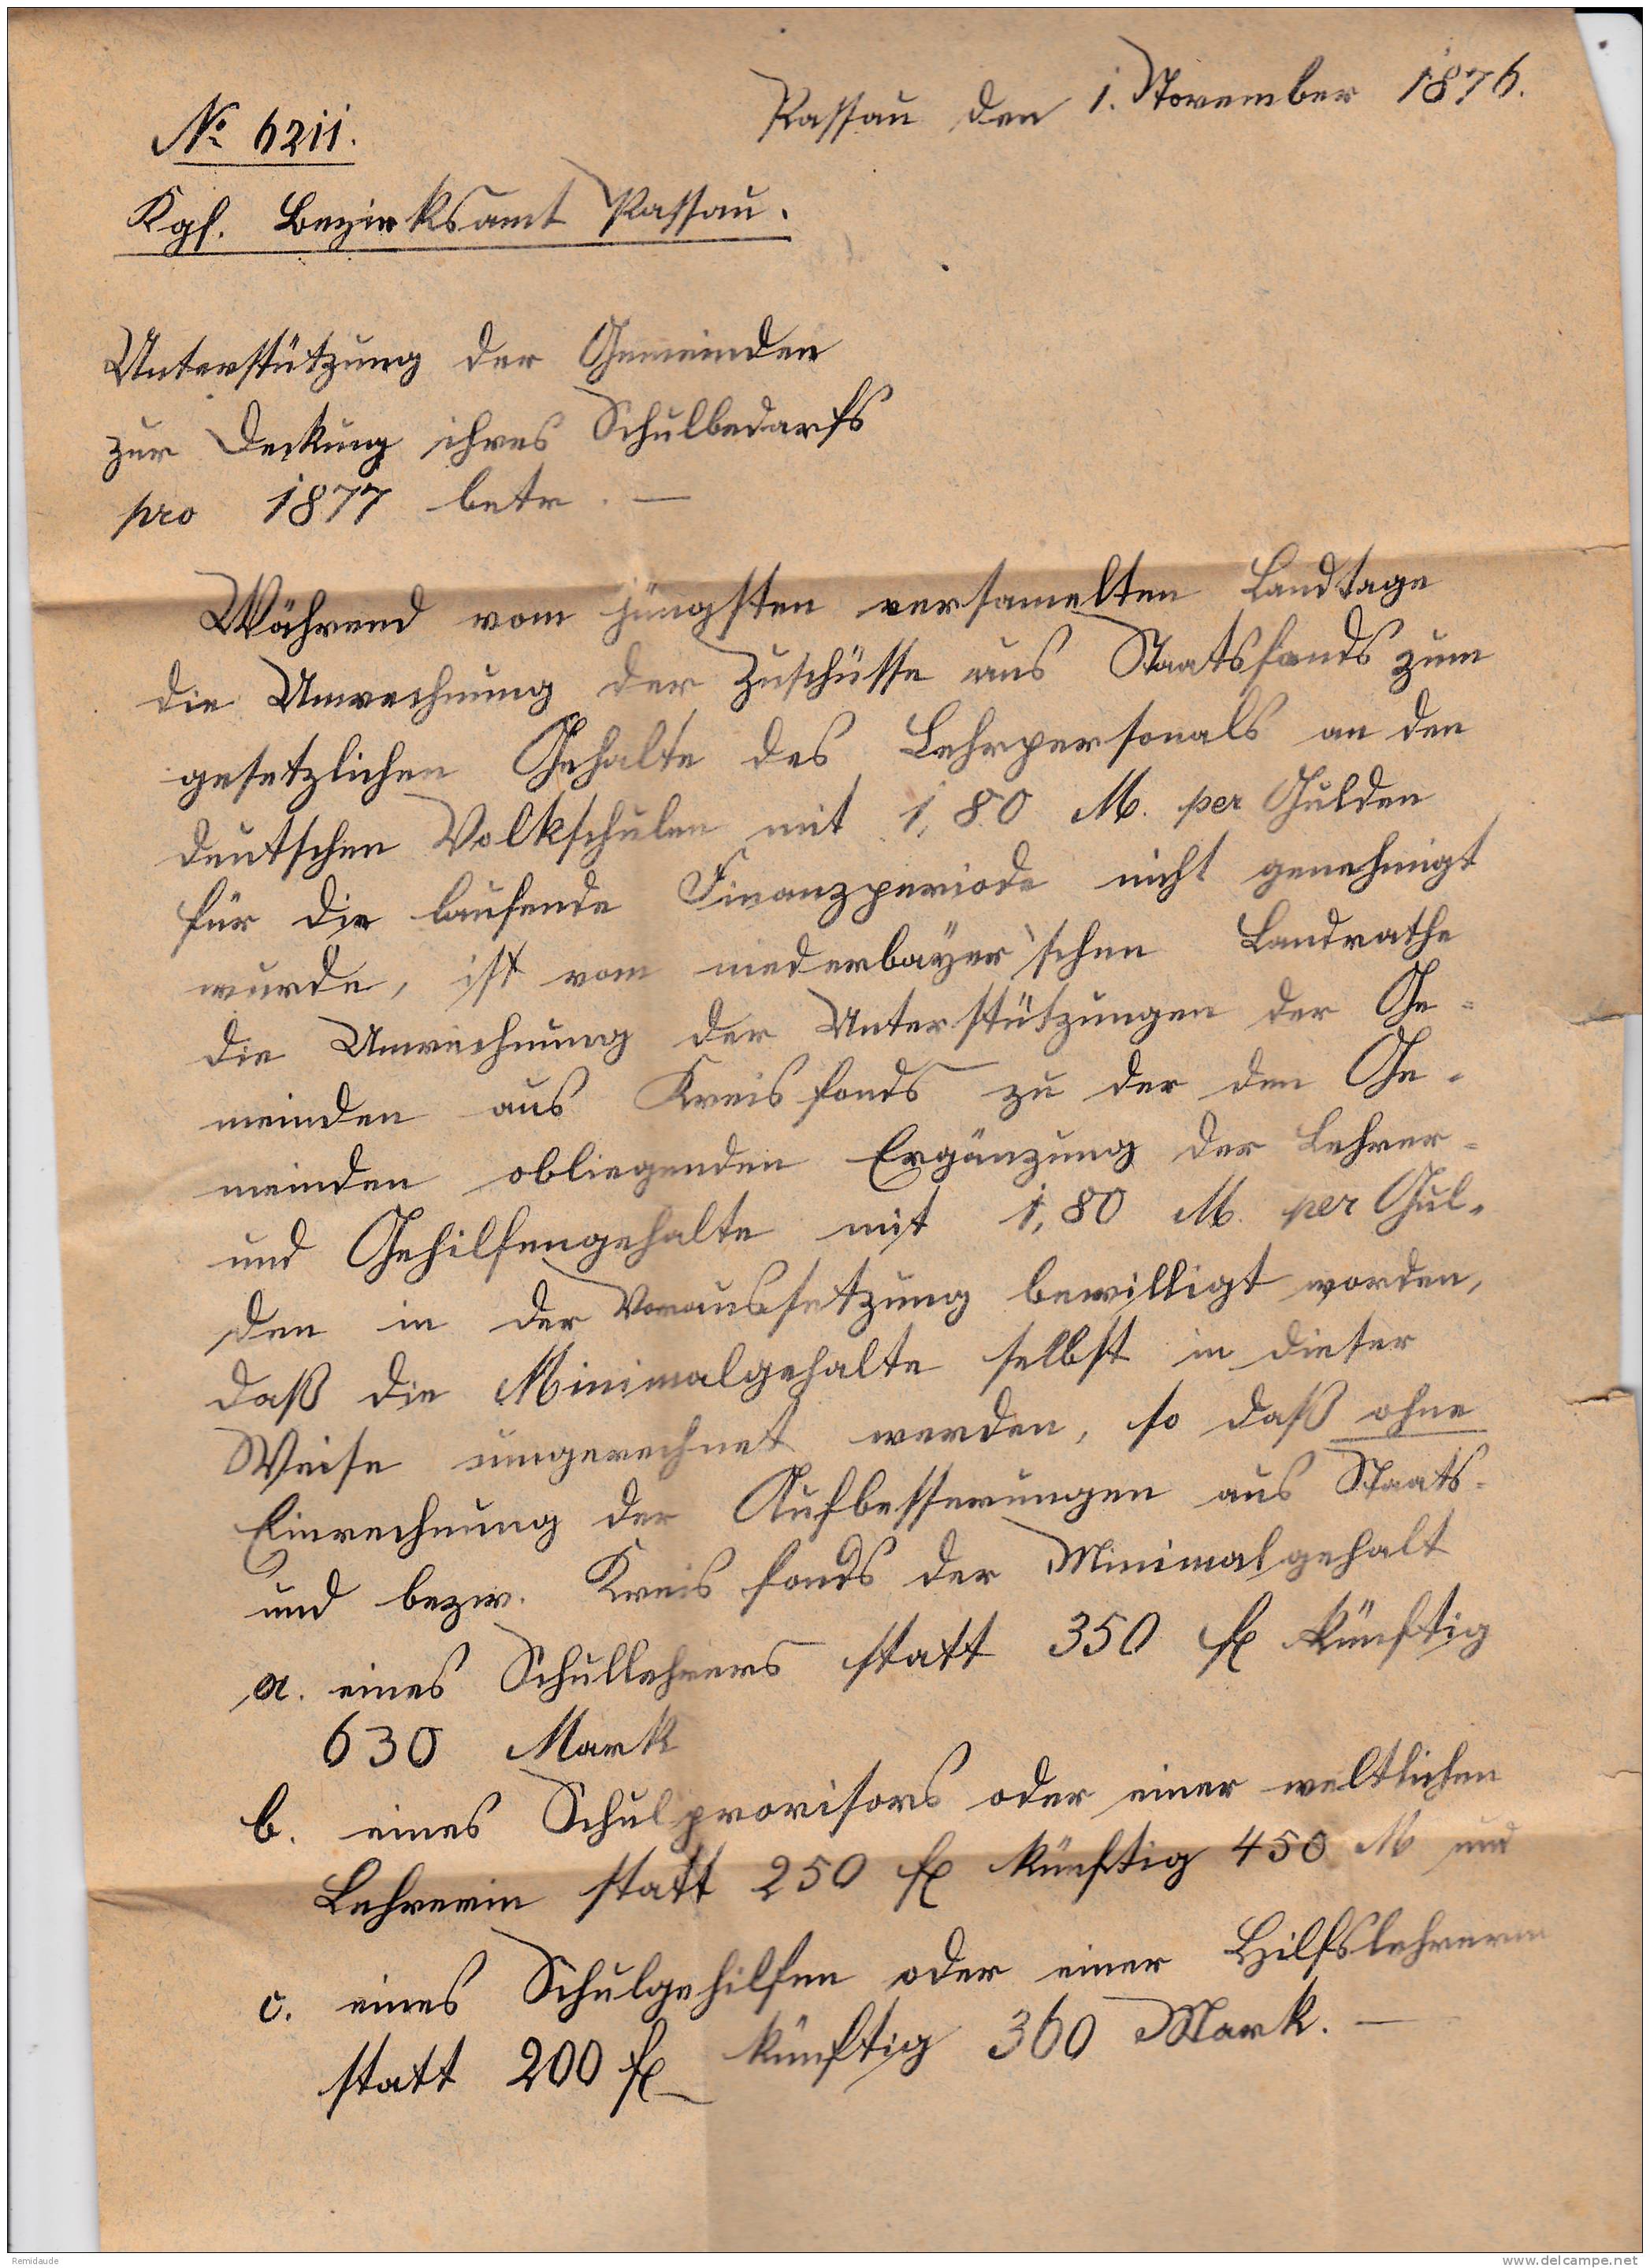 Passau den 1. November 1876.
No 6211.
Kgl. Bezirksamt Passau.
Unterstützung der Gemeinden
zur Deckung ihres Schulbedarfs
pro 1877 betr. —
Während vom jüngsten versamelten Landtage
die Umrechnung der Zuschüsse aus Staatsfonds zum
gesetzlichen Gehalte des Lehrpersonals an den
deutschen Volkschulen mit 1,80 M. per Gulden
für die laufende Finanzperiode nicht genehmigt
wurde, ist vom niederbayer'schen Landrathe
die Umrechnung der Unterstützungen der Ge=
meinden aus Kreisfonds zu der den Ge=
meinden obliegenden Ergänzung der Lehrer=
und Gehilfengehalte mit 1,80 M. per Gul=
den in der Voraussetzung bewilligt worden,
daß die Minimalgehalte selbst in dieser
Weise umgerechnet werden, so daß ohne
Einrechnung der Aufbesserungen aus Staats=
und bezw. Kreisfonds der Minimalgehalt
a. eines Schullehrers statt 350 fl künftig
630 Mark
b. eines Schulprovisors oder einer weltlichen
Lehrerin statt 250 fl künftig 450 M und
c. eines Schulgehilfen oder einer Hilfslehrerin
statt 200 fl künftig 360 Mark. —
Remidaude
www.delcampe.net